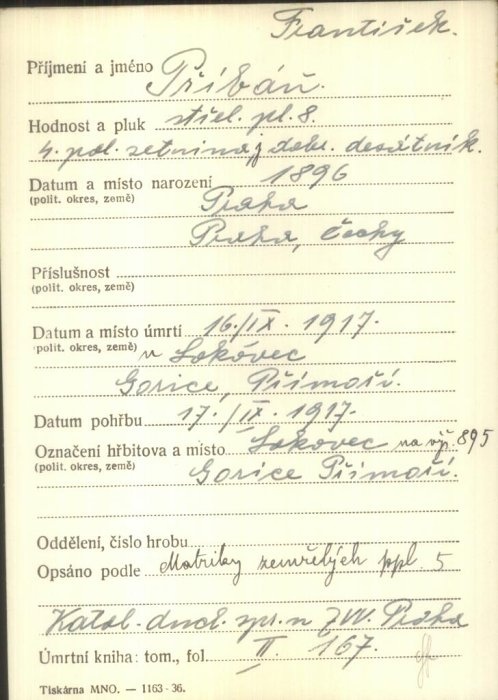 František.
Příjmení a jméno Přibáň.
Hodnost a pluk střel. pl. 8.
4. pol. setnina, dobr. desátník.
Datum a místo narození 1896
(polit. okres, země) Praha
Praha, Čechy
Příslušnost
(polit. okres, země)
Datum a místo úmrtí 16./IX. 1917.
(polit. okres, země) u Lokovec
Gorice, Přímoří.
Datum pohřbu 17./IX. 1917.
Označení hřbitova a místo Lokovec na výš. 895
(polit. okres, země) Gorice Přímoří.
Oddělení, číslo hrobu
Opsáno podle Matriky zemřelých ppl. 5
Katol. duch. spr. u ZVV. Praha
Úmrtní kniha: tom., fol. II. 167.
Tiskárna MNO. — 1163-36.